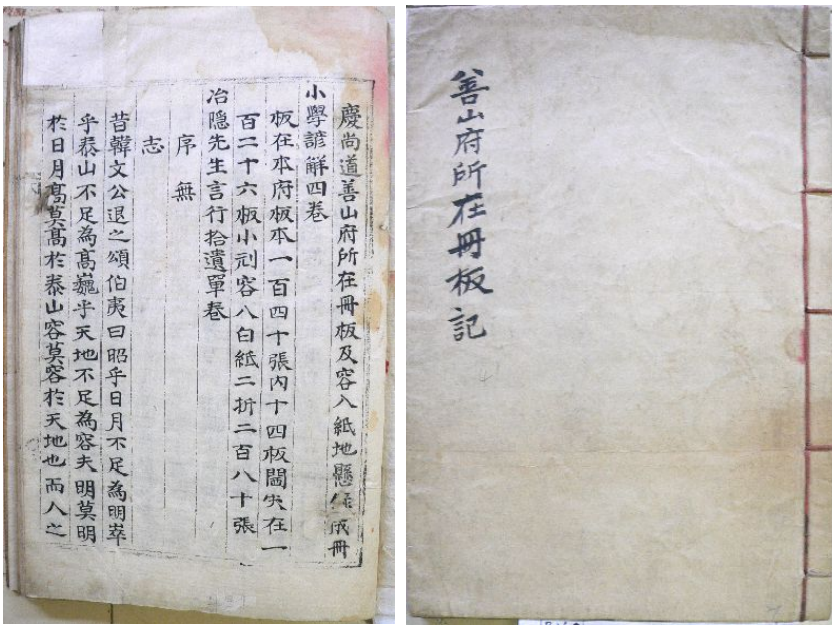 善山府所在冊板記
慶尚道善山府所在冊板及容入紙地懸錄成冊
小學諺解四卷
板在本府板本一百四十張內十四板閪失在一
百二十六板小刓容入白紙二折二百八十張
冶隐先生言行拾遺單卷
序無
志
昔韓文公退之頌伯夷曰昭乎日月不足為明崒
乎泰山不足為髙巍乎天地不足為容夫明莫明
於日月髙莫髙於泰山容莫容於天地也而人之